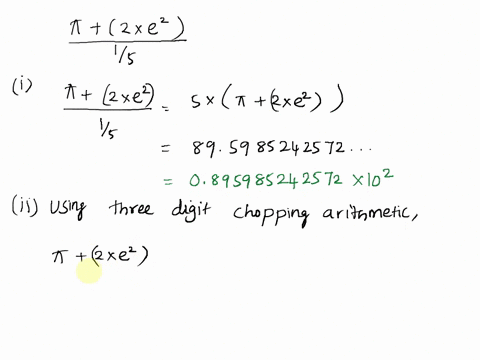 π + (2 x e²)
1/5
(i) π + (2 x e²) / 1/5 = 5 x (π + (2 x e²))
= 89.5985242572...
= 0.895985242572 x 10²
(ii) Using three digit chopping arithmetic,
π + (2 x e²)